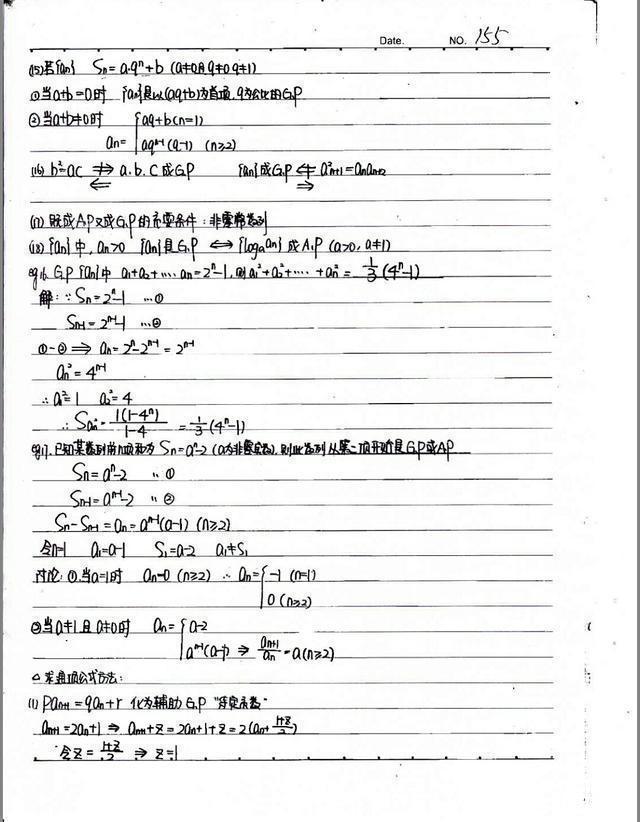 Date. NO. 155
(15) 若{an} Sn=a·qⁿ+b (a≠0且q≠0 q≠1)
①当a+b=0时 {an}是以(aq+b)为首项, q为公比的G.P
②当a+b≠0时 {aq+b(n=1)
an= aqⁿ⁻¹(q-1) (n≥2)
(16) b²=ac ⇏ ⇐ a.b.c成G.P {an}成G.P ⇍ ⇒ a²n+1=anan+2
(17) 既成AP又成G.P的充要条件: 非零常数列
(18) {an}中, an>0 {an}是G.P ⟺ {logaan}成A.P (a>0, a≠1)
eg16. G.P {an}中 a1+a2+…. an=2ⁿ-1, 则a1²+a2²+…… +an²= 1/3(4ⁿ-1)
解: ∵ Sn=2ⁿ-1 …①
Sn-1=2ⁿ⁻¹-1 …②
①-② ⟹ an=2ⁿ-2ⁿ⁻¹=2ⁿ⁻¹
an²=4ⁿ⁻¹
∴ a1²=1 a2²=4
∴ San²= 1(1-4ⁿ)/1-4 = 1/3(4ⁿ-1)
eg17. 已知某数列前n项和为 Sn=aⁿ-2 (a为非零常数), 则此数列从第二项开始是G.P或AP
Sn=aⁿ-2 ①
Sn-1=aⁿ⁻¹-2 ②
Sn-Sn-1=an=aⁿ⁻¹(a-1) (n≥2)
令n=1 a1=a-1 S1=a-2 a1≠S1
讨论: ①.当a=1时 an=0 (n≥2) ∴ an={-1 (n=1)
0 (n≥2)
②当a≠1且a≠0时 an={a-2
aⁿ⁻¹(a-1) ⇒ an+1/an=a(n≥2)
△ 求通项公式方法:
(1) Pan+1=qan+r 化为辅助G.P "待定系数"
an+1=2an+1 ⇒ an+1+z=2an+1+z=2(an+ 1+z/2)
令z= 1+z/2 ⇒ z=1